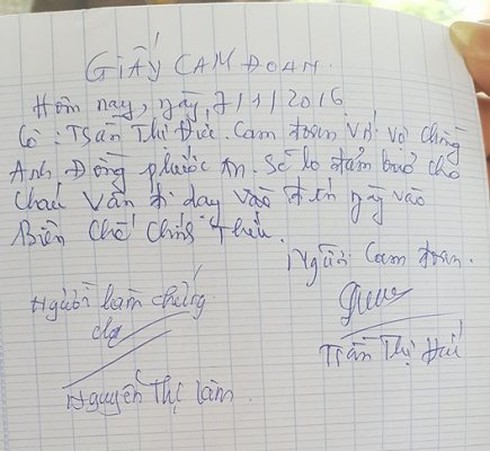 GIẤY CAM ĐOAN.
Hôm nay, ngày, 7/1/2016
Cô : Trần Thị Huệ. Cam đoan Với Vợ Chồng
Anh Đồng phước tn. Sẽ lo đảm bảo cho
Cháu Vân đi dạy Vào đến ngày vào
Biên Chế Chính Thức.
Người Cam đoan.
Người làm chứng.
Trần Thị Huệ
Nguyễn Thị Lam.